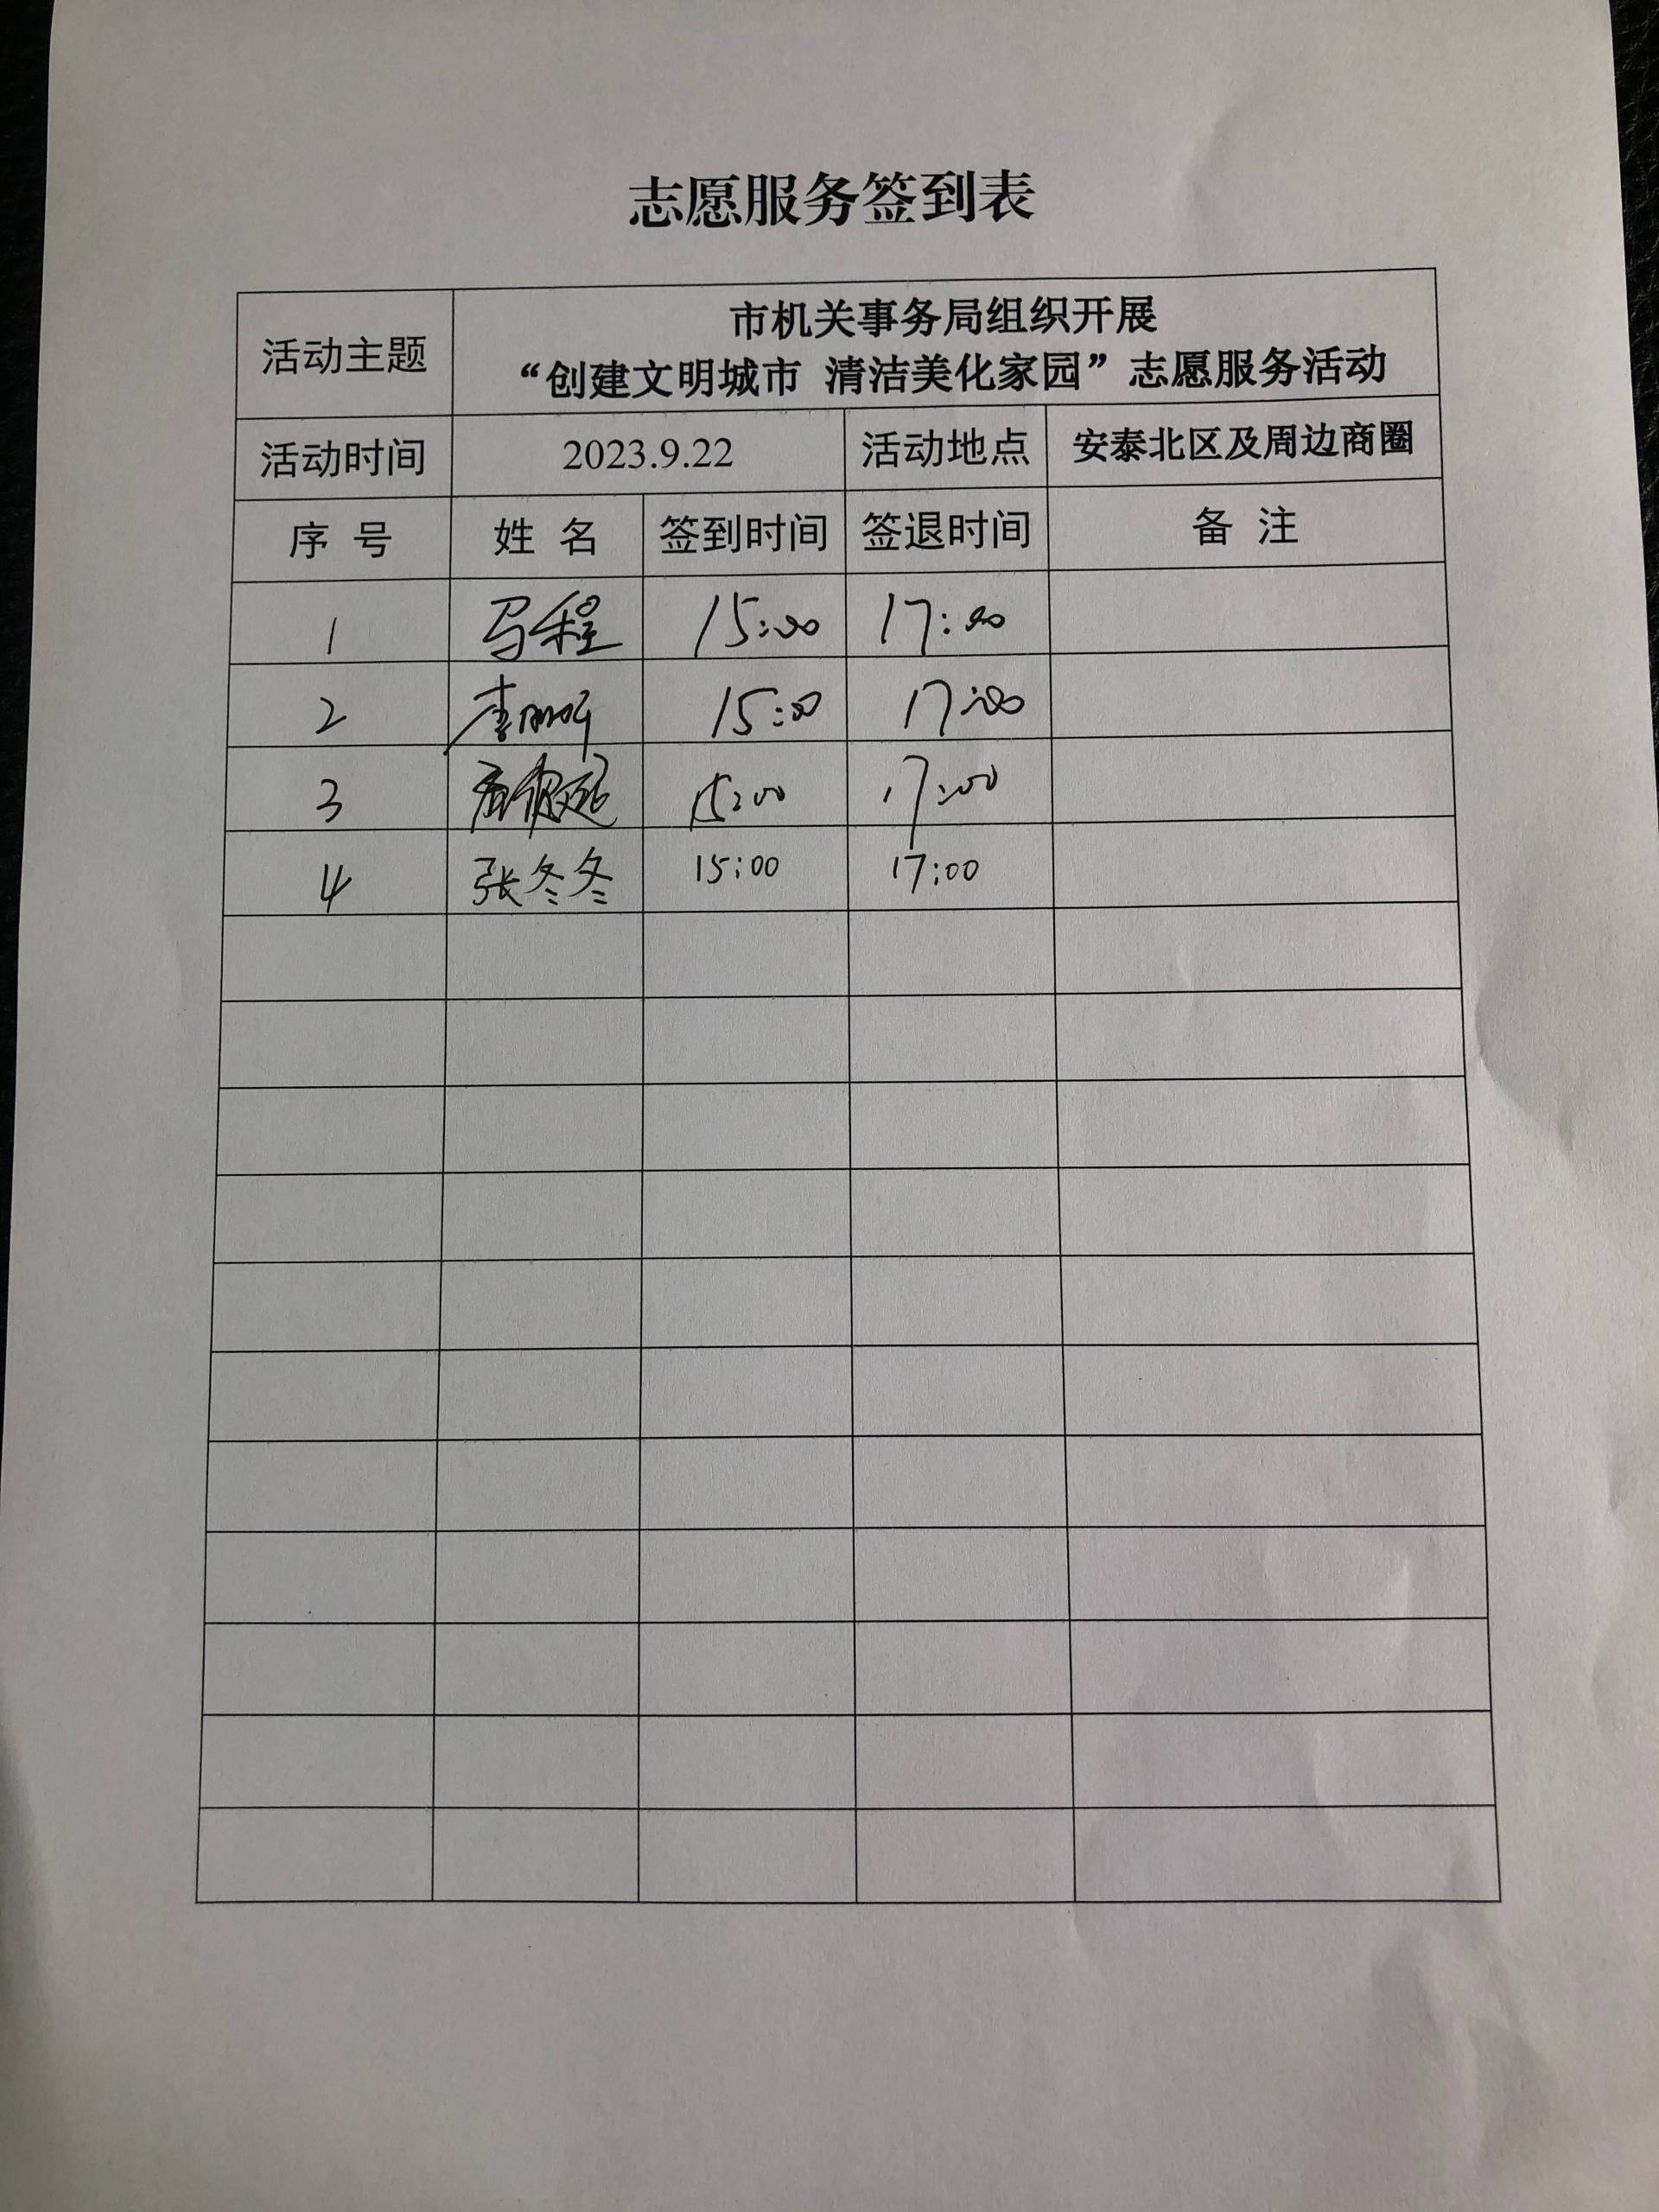 志愿服务签到表
活动主题
市机关事务局组织开展
“创建文明城市 清洁美化家园”志愿服务活动
活动时间 2023.9.22 活动地点 安泰北区及周边商圈
序 号 姓 名 签到时间 签退时间 备 注
1 马程 15:00 17:00
2 李 15:00 17:00
3 15:00 17:00
4 张冬冬 15:00 17:00